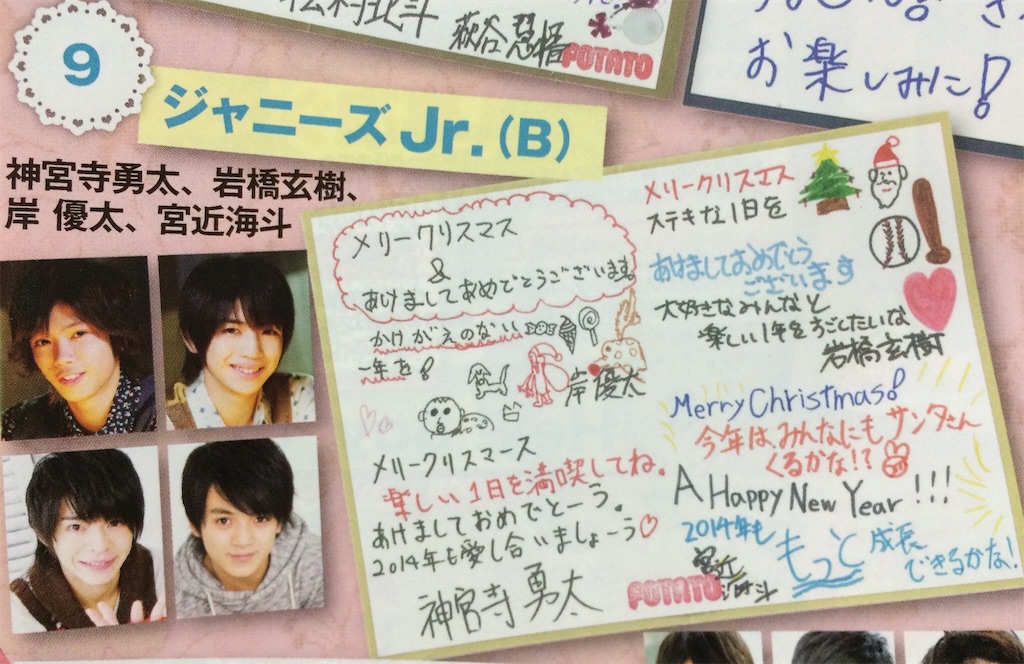 松村北斗
萩谷慧悟
POTATO
お楽しみに!
9
ジャニーズJr.(B)
神宮寺勇太、岩橋玄樹、
岸 優太、宮近海斗
メリークリスマス
&
あけましておめでとうございます。
かけがえのない
一年を!
岸優太
メリークリスマース
楽しい1日を満喫してね。
あけましておめでとーう。
2014年も愛し合いましょーう♡
神宮寺勇太
メリークリスマス
ステキな1日を
あけましておめでとう
ございます
大好きなみんなと
楽しい1年をすごしたいな
岩橋玄樹
Merry Christmas!
今年は、みんなにもサンタさん
くるかな!?
A Happy New Year!!!
2014年も
もっと
成長
できるかな!
宮近
海斗
POTATO